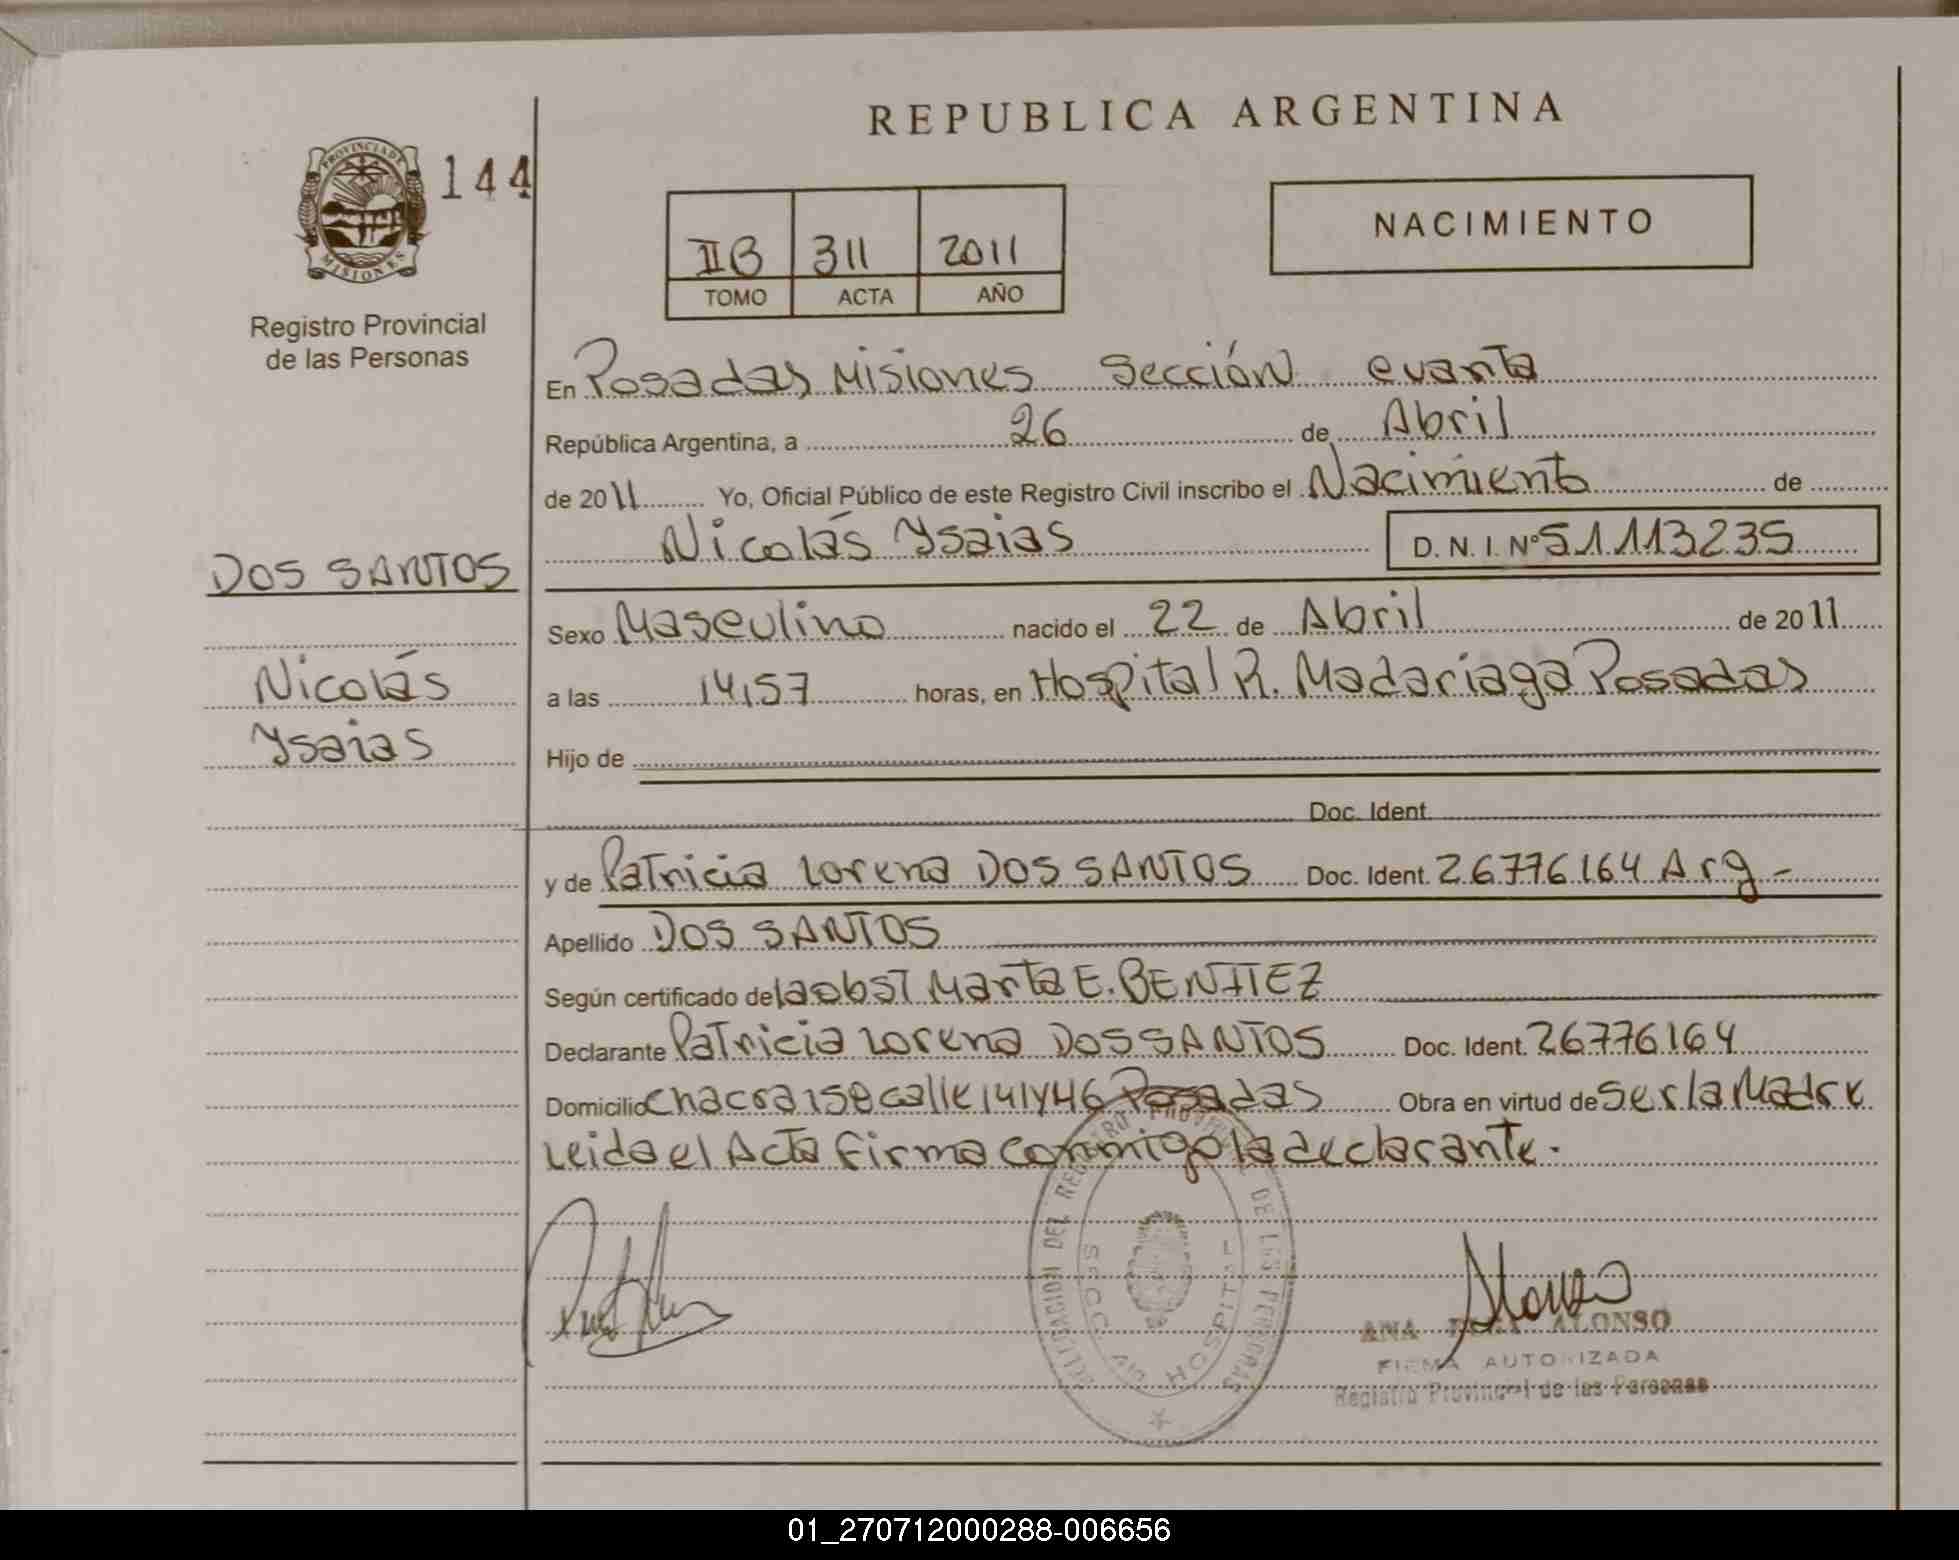 REPUBLICA ARGENTINA
PROVINCIA DE
MISIONES
144
Registro Provincial
de las Personas
IIB 311 2011
TOMO ACTA AÑO
NACIMIENTO
En Posadas Misiones Sección cuarta
República Argentina, a 26 de Abril
de 2011 Yo, Oficial Público de este Registro Civil inscribo el Nacimiento de
Nicolás Ysaias D. N. I. Nº 51113235
DOS SANTOS
Nicolás
Ysaias
Sexo Masculino nacido el 22 de Abril de 2011
a las 14,57 horas, en Hospital R. Madariaga Posadas
Hijo de
Doc. Ident.
y de Patricia Lorena DOS SANTOS Doc. Ident. 26776164 Arg -
Apellido DOS SANTOS
Según certificado de la obst Marta E. BENITEZ
Declarante Patricia Lorena DOS SANTOS Doc. Ident. 26776164
Domicilio chacra 158 calle 141 y 46 Posadas Obra en virtud de ser la Madre
Leida el Acta firma conmigo la declarante.
DELEGACION DEL REGISTRO PROVINCIAL DE LAS PERSONAS
SECC. HOSPITAL
ANA ALONSO
FIRMA AUTORIZADA
Registro Provincial de las Personas
01_270712000288-006656